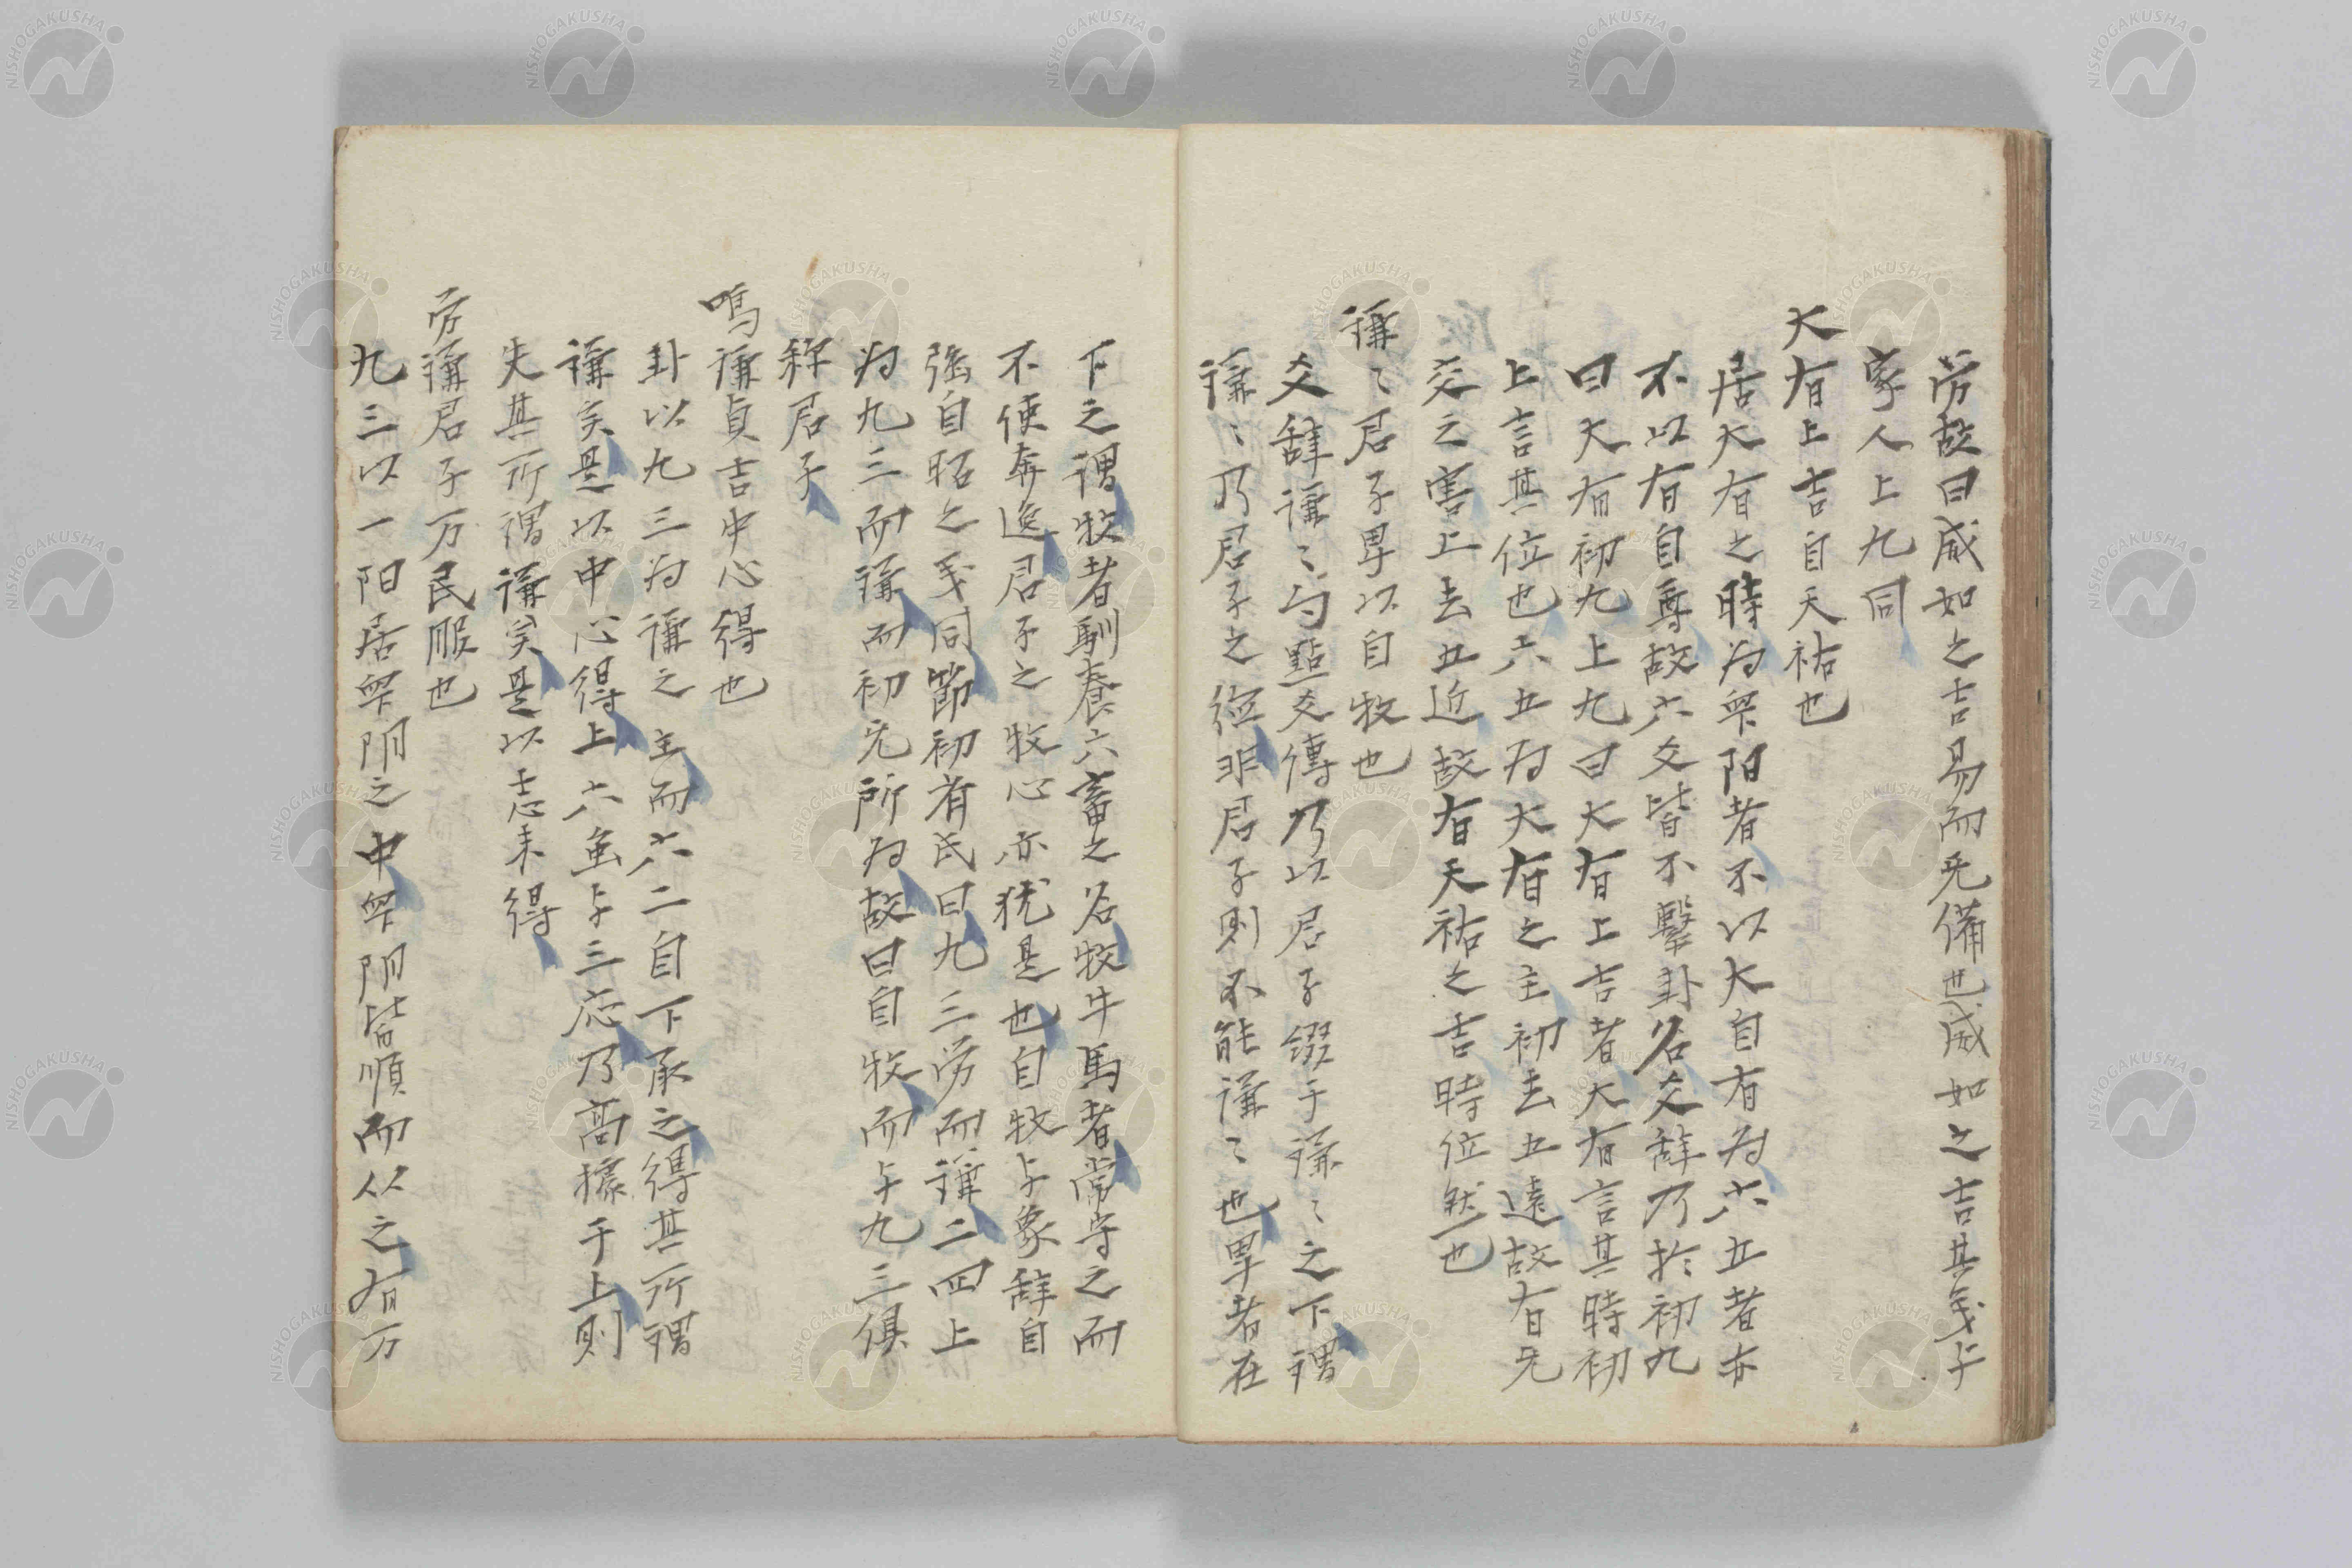 労故曰威如之吉易而无備也威如之吉其㦮与
家人上九同
大有上吉自天祐也
居大有之時为衆阳者不以大自有为六五者亦
不以有自尊故六爻皆不繫卦名爻辞乃於初九
曰大有初九上九曰大有上吉者大有言其時初
上言其位也六五为大有之主初去五遠故有无
交之害上去五近故有天祐之吉時位然也
謙〻君子卑以自牧也
爻辞謙〻勾點爻傳乃以君子綴于謙〻之下謂
謙〻乃君子之德非君子則不能謙〻也卑者在
下之謂牧者馴養六畜之名牧牛馬者常守之而
不使奔逸君子之牧心亦犹是也自牧与象辞自
強自昭之㦮同節初斉氏曰九三労而謙二四上
为九三而謙而初无所为故曰自牧而与九三俱
称君子
鳴謙貞吉中心得也
卦以九三为謙之主而六二自下承之得其所謂
謙矣是以中心得上六虽与三応乃高據于上則
失其所謂謙矣是以志未得
労謙君子万民服也
九三以一阳居衆阴之中衆阴皆順而从之有万
NISHOGAKUSHA